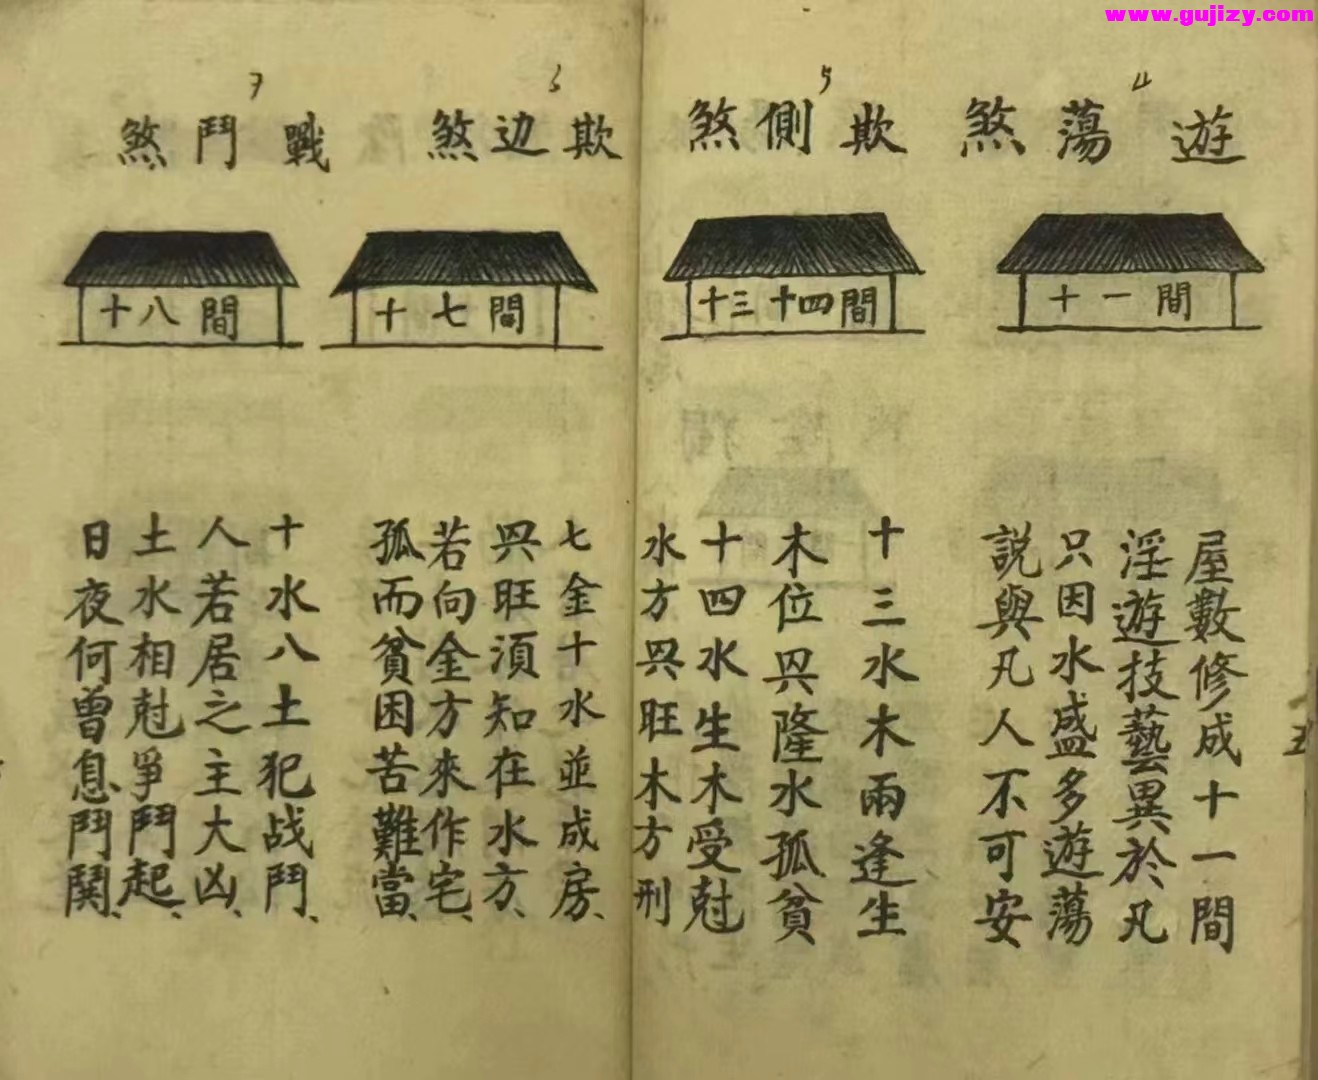 www.gujizy.com
4
遊蕩煞
十一間
屋數修成十一間
淫遊技藝異於凡
只因水盛多遊蕩
說與凡人不可安
5
欺側煞
十三十四間
十三水木兩逢生
木位兴隆水孤貧
十四水生木受尅
水方兴旺木方刑
6
欺边煞
十七間
七金十水並成房、
兴旺須知在水方、
若向金方來作宅、
孤而貧困苦難當、
7
戰鬥煞
十八間
十水八土犯战鬥、
人若居之主大凶、
土水相尅爭鬥起、
日夜何曾息鬥闗、
五